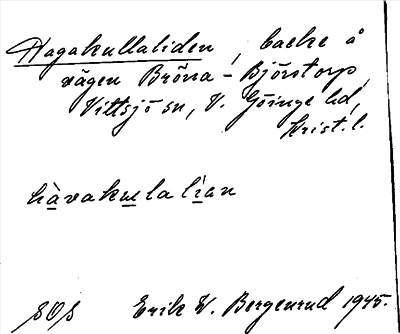 Hagakullaliden, backe å
vägen Bröna - Björstorp,
Vittsjö sn, V. Göinge hd,
Krist. l.
hàvakullalían
SOS Erik W. Bergenrud 1945.